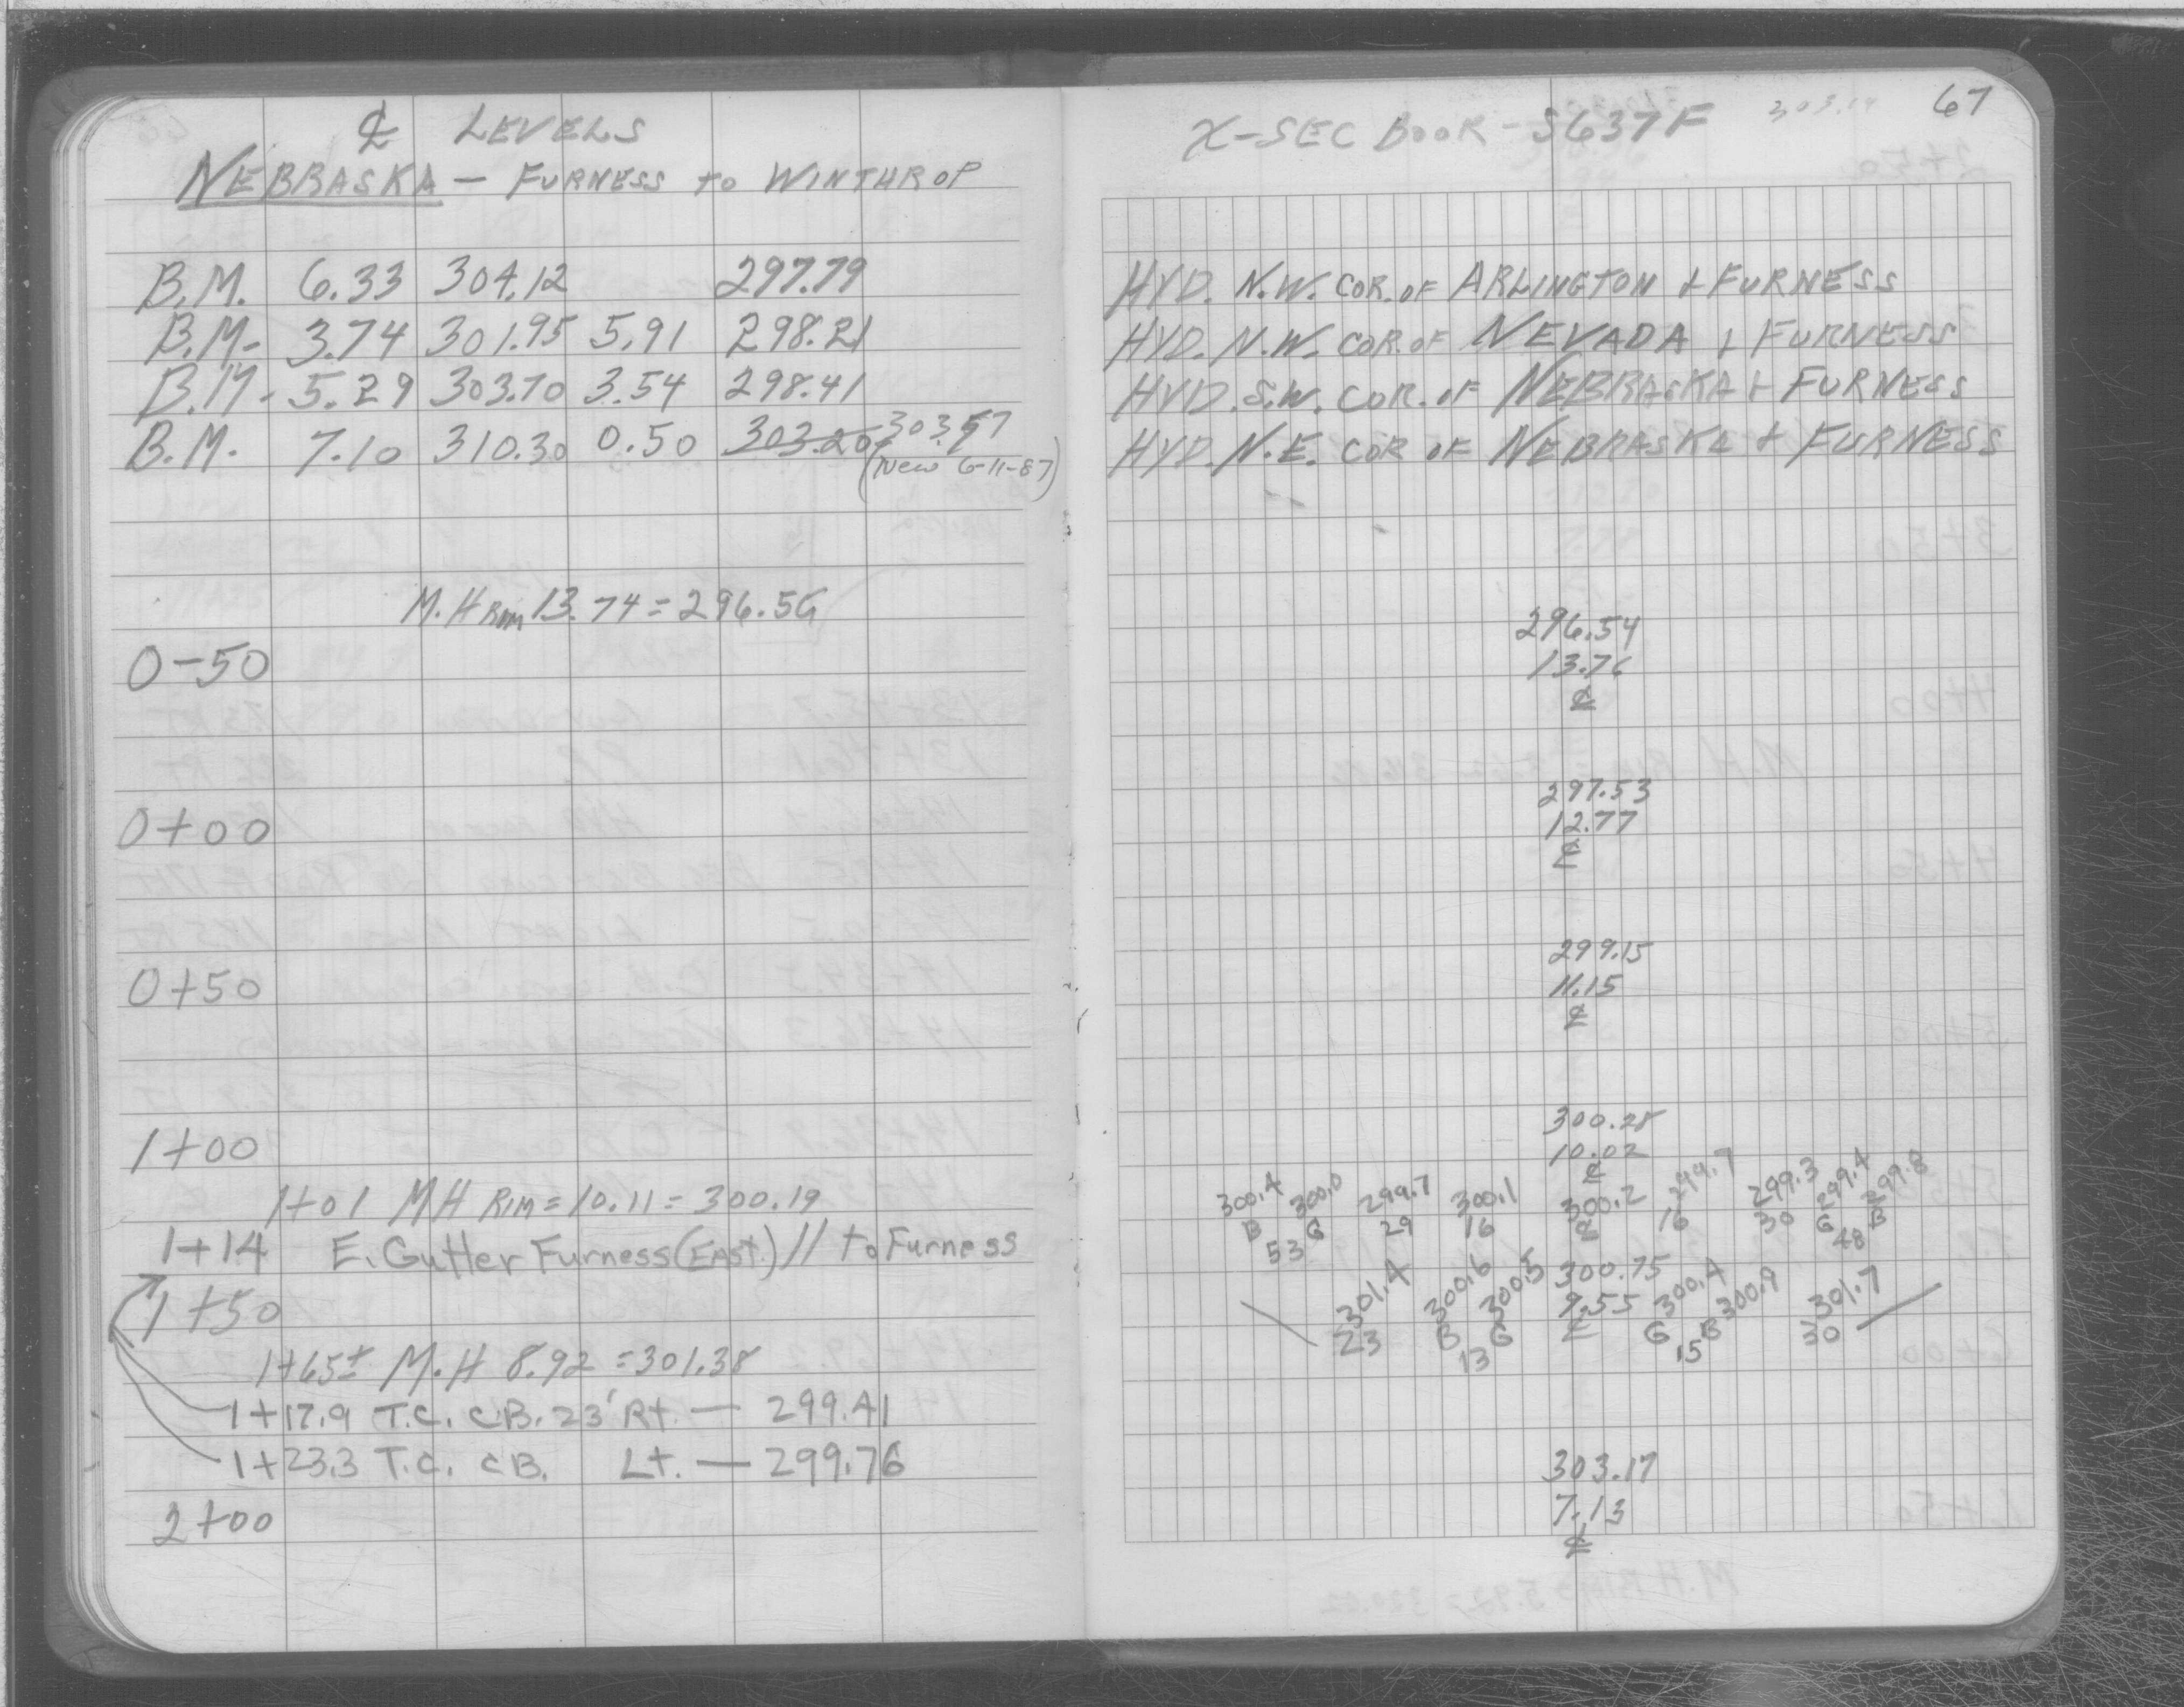 ℄ LEVELS
NEBRASKA – FURNESS to WINTHROP
B.M. 6.33 304.12 297.79
B.M- 3.74 301.95 5.91 298.21
B.M- 5.29 303.70 3.54 298.41
B.M. 7.10 310.30 0.50 303.20
(New 6-11-87)
M.H Rim 13.74 = 296.56
0-50
0+00
0+50
1+00
1+01 MH RIM = 10.11 = 300.19
1+14 E. Gutter Furness (EAST.) // to Furness
1+50
1+65± M.H 8.92 = 301.38
1+17.9 T.C. C.B. 23' Rt. — 299.41
1+23.3 T.C. C.B. Lt. — 299.76
2+00
X-SEC BOOK - S637F 303.19 67
HYD. N.W. COR. OF ARLINGTON + FURNESS
HYD. N.W. COR. OF NEVADA + FURNESS
HYD. S.W. COR. OF NEBRASKA + FURNESS
HYD. N.E. COR OF NEBRASKA + FURNESS
296.54
13.76
℄
297.53
12.77
℄
299.15
11.15
℄
300.28
10.02
℄
300.4 300.0 299.7 300.1 300.2 299.7 299.3 299.4 299.8
B G 29 16 ℄ 16 30 G B
53 48
301.4 300.6 300.5 300.75 300.4 300.9 301.7
9.55
23 B G ℄ G B 30
13 15
303.17
7.13
℄